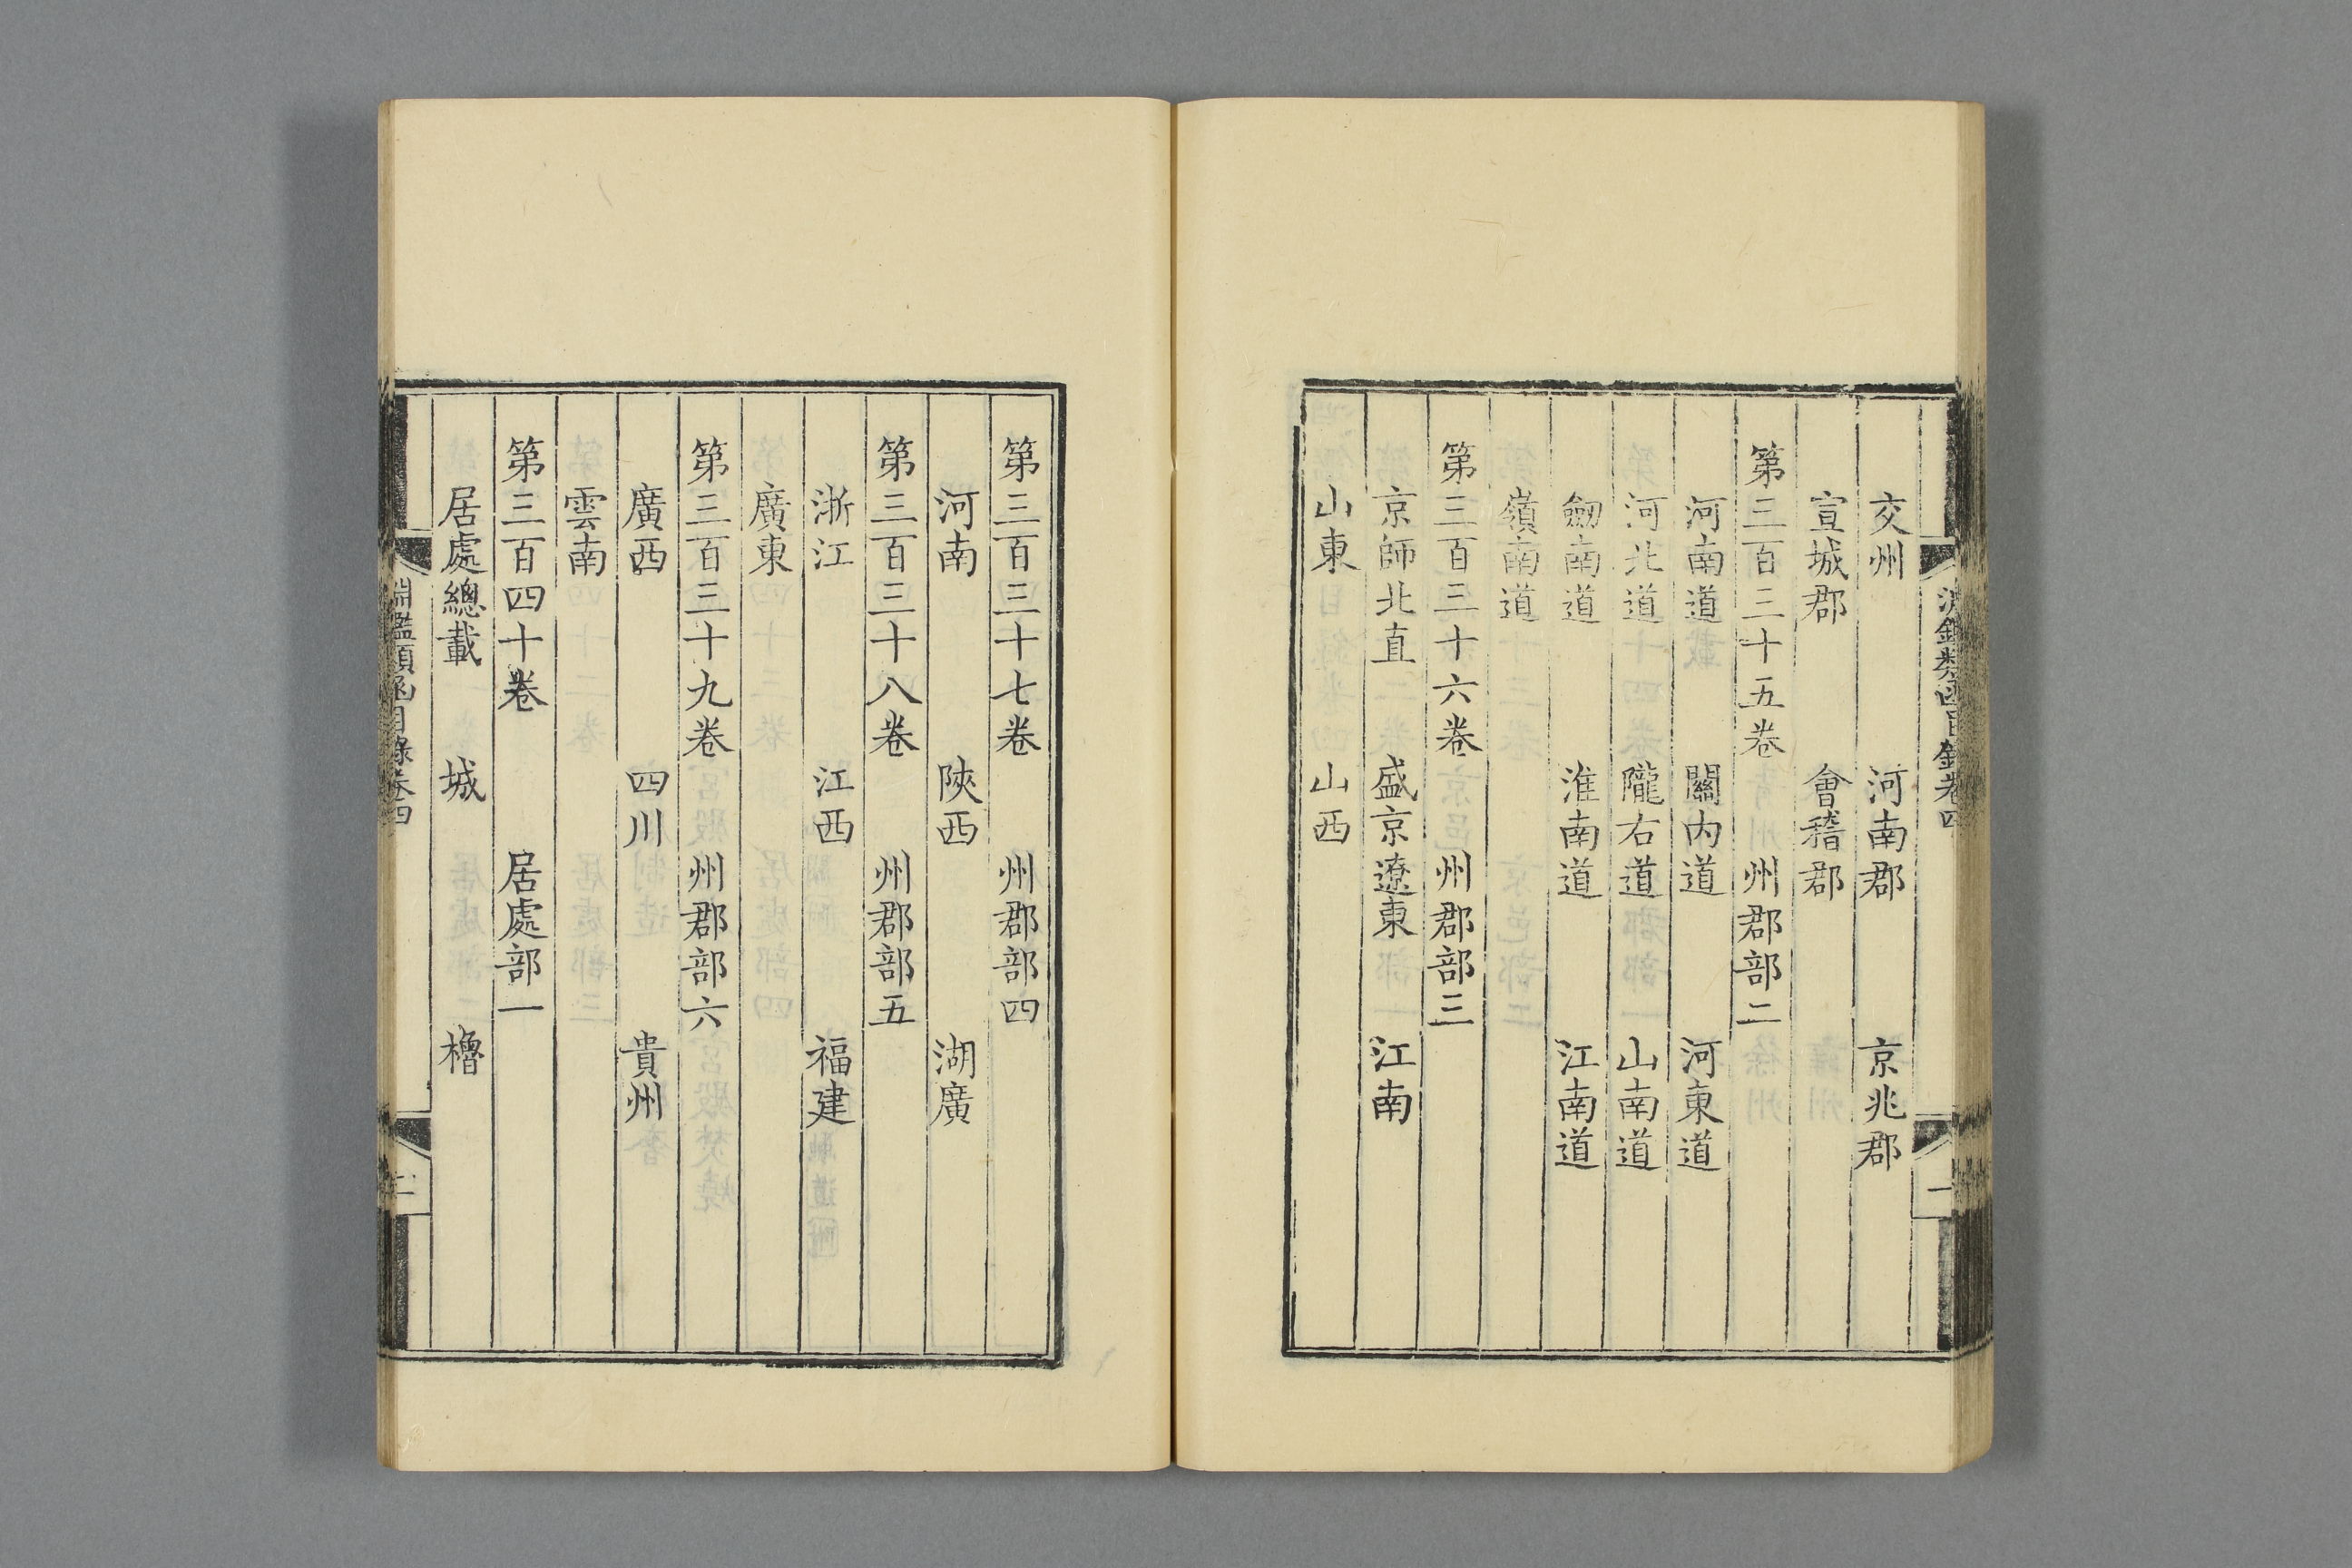 交州 河南郡 京兆郡
宣城郡 會稽郡
第三百三十五卷 州郡部二
河南道 關内道 河東道
河北道 隴右道 山南道
劒南道 淮南道 江南道
嶺南道
第三百三十六卷 州郡部三
京師北直 盛京遼東 江南
山東 山西
第三百三十七卷 州郡部四
河南 陝西 湖廣
第三百三十八卷 州郡部五
浙江 江西 福建
廣東
第三百三十九卷 州郡部六
廣西 四川 貴州
雲南
第三百四十卷 居處部一
居處總載 城 櫓
淵鑑類函目錄卷四
二